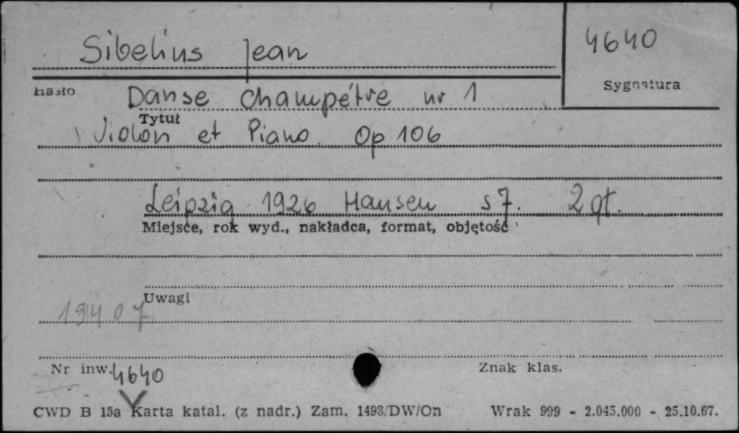 Sibelius Jean
4640
Hasło
Sygnatura
Danse Champétre nr 1
Tytuł
Violon et Piano. Op 106
Leipzig 1926 Hansen s 7. 2 gł.
Miejsce, rok wyd., nakładca, format, objętość
Uwagi
19407
Nr inw. 4640
Znak klas.
CWD B 15a Karta katal. (z nadr.) Zam. 1493/DW/On Wrak 999 - 2.045.000 - 25.10.67.